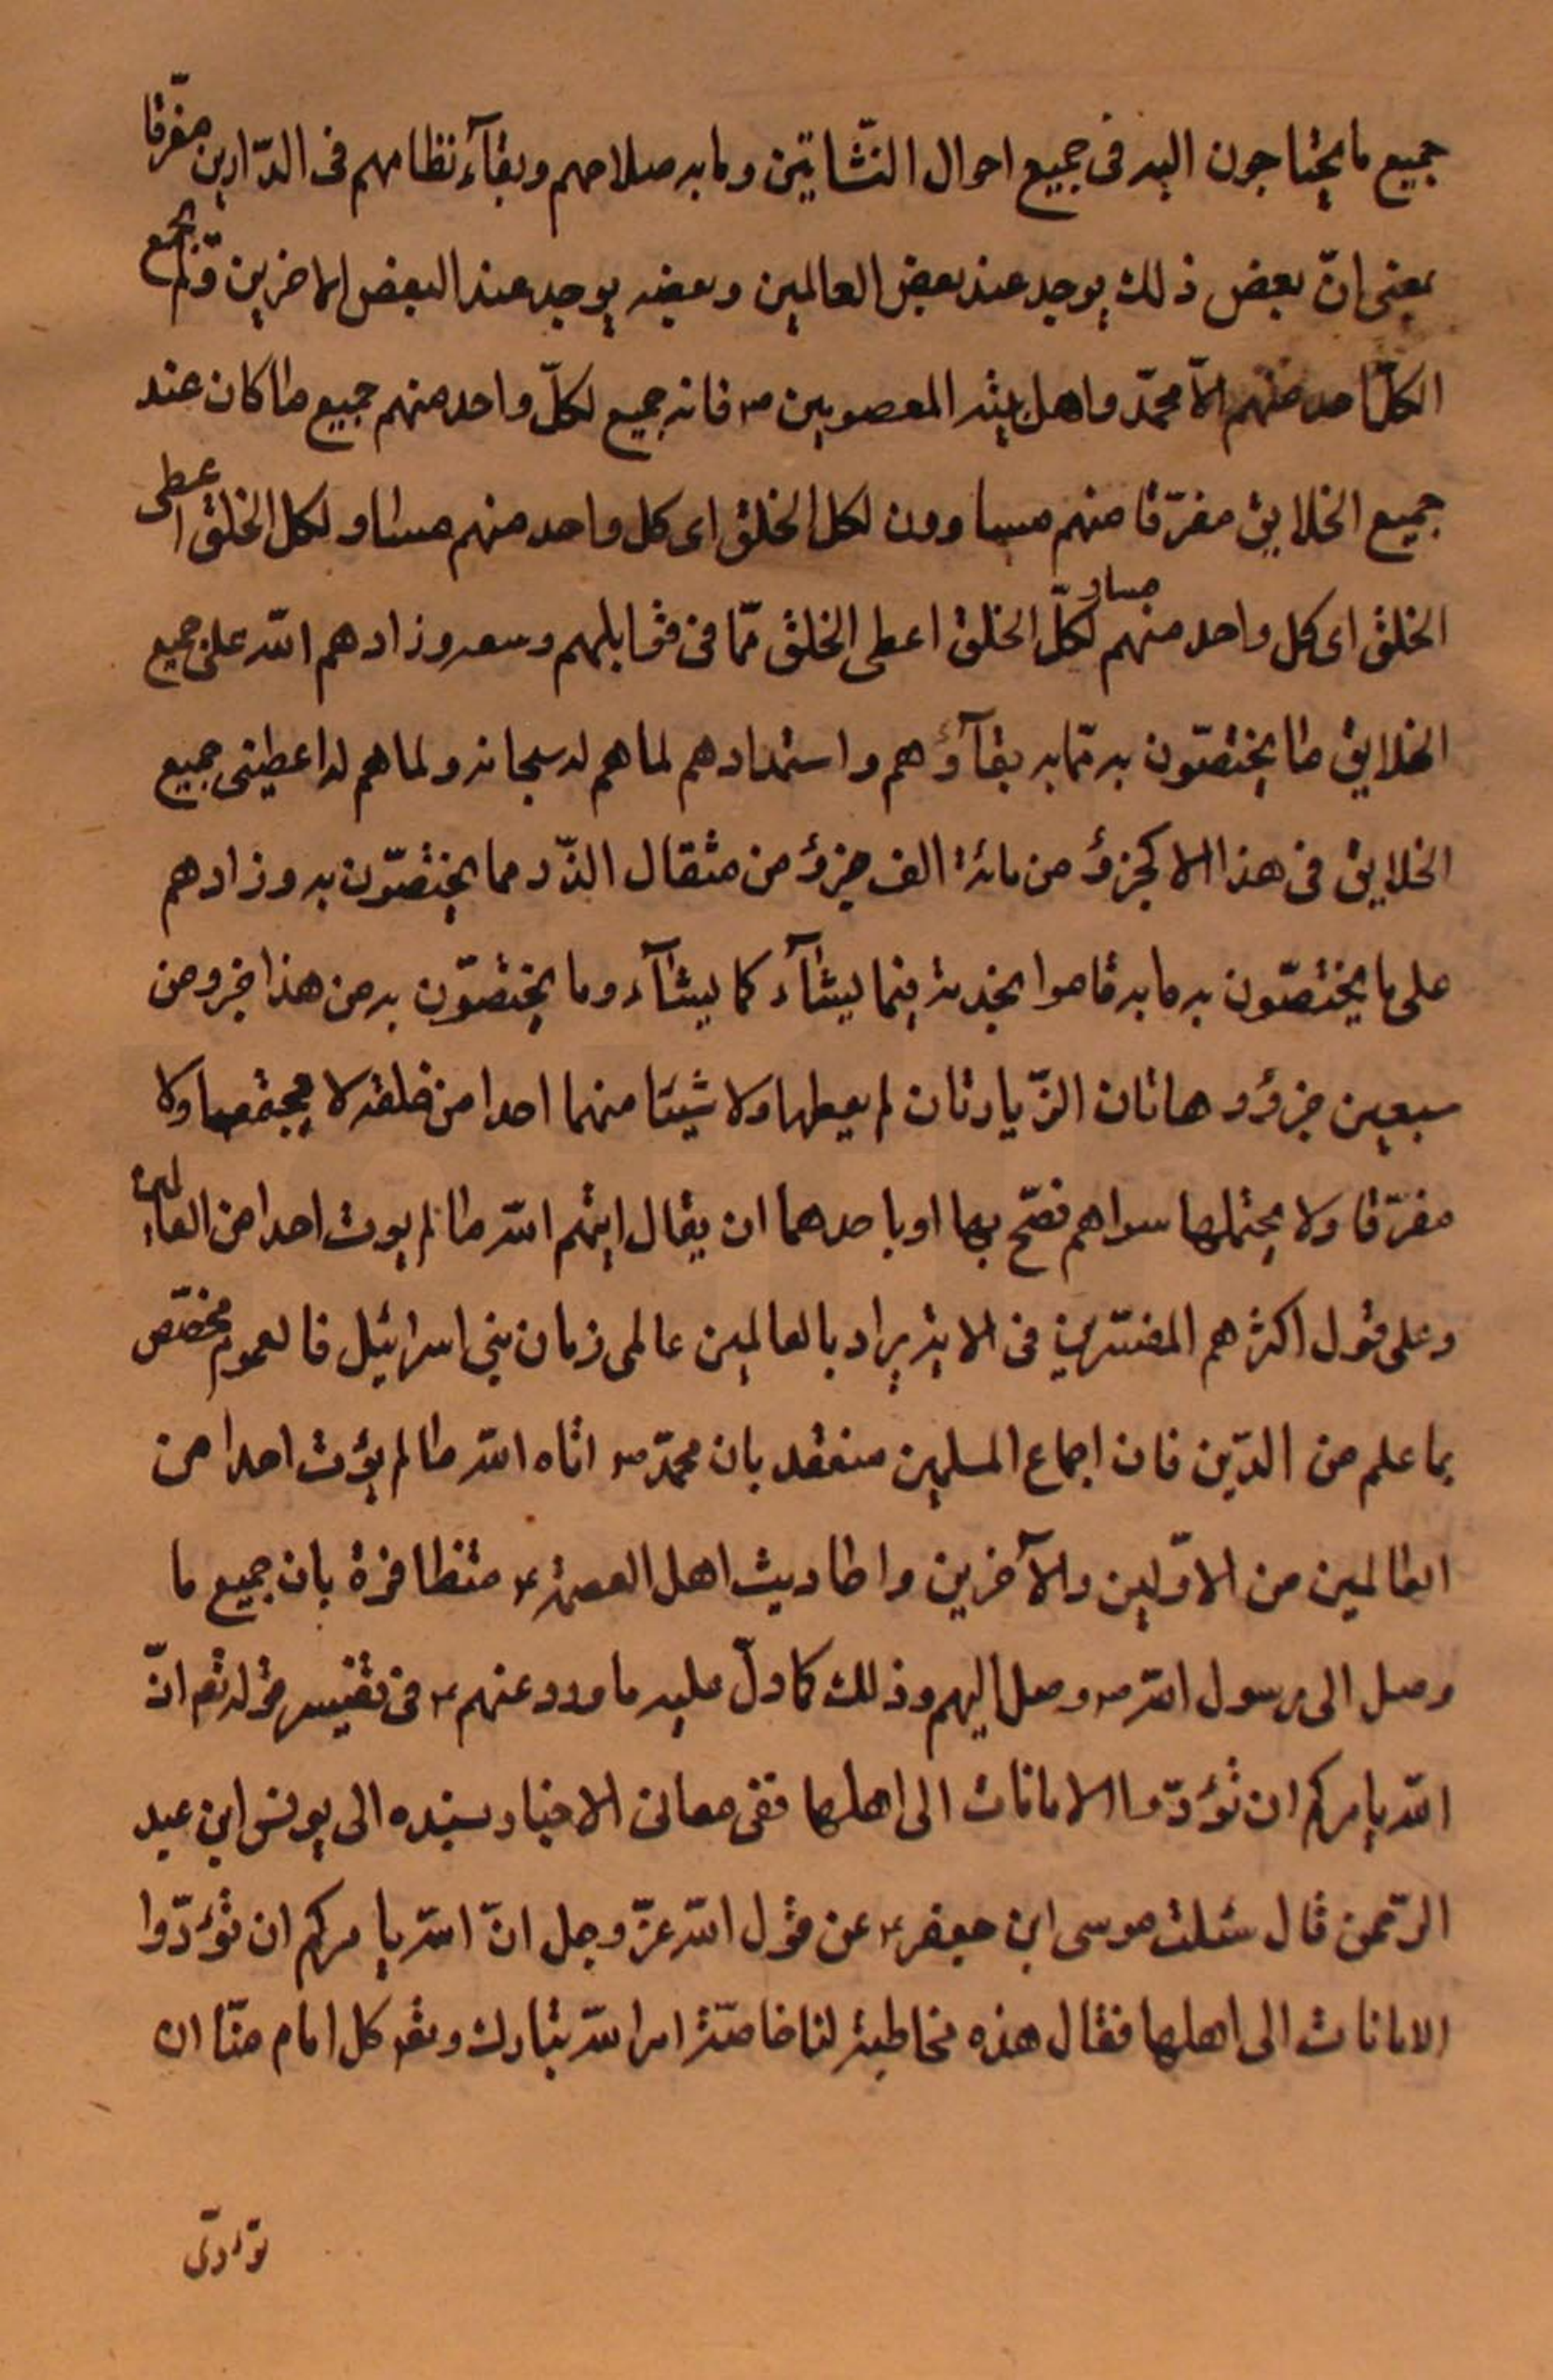 جميع ما يحتاجون اليه فى جميع احوال النّشاتين وما به صلاحهم وبقآء نظامهم فى الدّارين مفرّقا
بمعنى انّ بعض ذلك يوجد عند بعض العالمين وبعضه يوجد عند البعض الاخرين ولم يجمع
الكلّ احد منهم الاّ محمّد واهل بيته المعصومين ص فانه جميع لكلّ واحد منهم جميع ما كان عند
جميع الخلايق مفرّقا منهم مساوون لكل الخلق اى كل واحد منهم مساو لكل الخلق اعطى
الخلق اى كل واحد منهم مساو لكلّ الخلق اعطى الخلق ممّا فى مقابلهم وسعه وزادهم الله على جميع
الخلايق ما يختصّون به ممّا به بقآؤهم واستمدادهم لما هم له سبحانه ولما هم له اعطينى جميع
الخلايق فى هذا الا كجزؤ من مائة الف جزؤ من مثقال الذّر مما يختصّون به وزادهم
على ما يختصّون به ما به قاموا بخدمته فيما يشآء كما يشآء وما يختصّون به من هذا جزو من
سبعين جزؤ وهاتان الزّيادتان لم يعطها ولا شيئا منهما احدا من خلقه لا مجتمعا ولا
مفرّقا ولا يحتملها سواهم فصّح بها او باحدهما ان يقال ايتهم الله ما لم يوت احدا من العالمين
وعلى قول اكثرهم المفسّرين فى الاية يراد بالعالمين عالمى زمان بنى اسرائيل فالعموم مخصّص
بما علم من الدّين فان اجماع المسلمين منعقد بان محمّد ص اتاه الله ما لم يؤت احدا من
العالمين من الاوّلين والآخرين واحاديث اهل العصمة ع متظافرة بان جميع ما
وصل الى رسول الله ص وصل اليهم وذلك كما دلّ عليه ما ورد عنهم ع فى تفسير قوله تعم انّ
الله يامركم ان تؤدّوا الامانات الى اهلها ففى معانى الاخبار بسنده الى يونس ابن عبد
الرّحمن قال سئلت موسى ابن جعفر ع عن قول الله عزّ وجل انّ الله يامركم ان تؤدّوا
الامانات الى اهلها فقال هذه مخاطبة لنا خاصّة امر الله تبارك وتعم كل امام منّا ان
تؤدّى